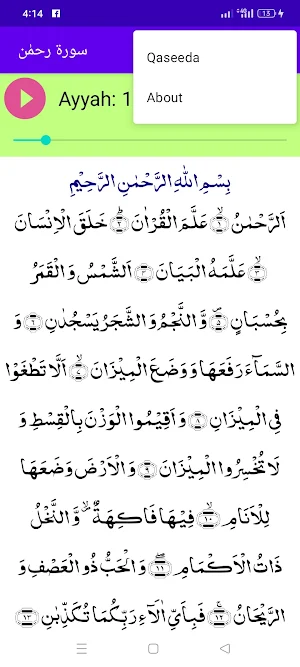 4:14
4G
13
سورة رحمٰن
Qaseeda
About
Ayyah: 1
بِسْمِ اللّٰهِ الرَّحْمٰنِ الرَّحِيْمِ
اَلرَّحْمٰنُ ۙ﴿۱﴾ عَلَّمَ الْقُرْاٰنَ ؕ﴿۲﴾ خَلَقَ الْاِنْسَانَ
ۙ﴿۳﴾ عَلَّمَهُ الْبَيَانَ ﴿۴﴾ اَلشَّمْسُ وَ الْقَمَرُ
بِحُسْبَانٍ ۪﴿۵﴾ وَّ النَّجْمُ وَ الشَّجَرُ يَسْجُدٰنِ ﴿۶﴾ وَ
السَّمَآءَ رَفَعَهَا وَ وَضَعَ الْمِيْزَانَ ۙ﴿۷﴾ اَلَّا تَطْغَوْا
فِي الْمِيْزَانِ ﴿۸﴾ وَ اَقِيْمُوا الْوَزْنَ بِالْقِسْطِ وَ
لَا تُخْسِرُوا الْمِيْزَانَ ﴿۹﴾ وَ الْاَرْضَ وَضَعَهَا
لِلْاَنَامِ ۙ﴿۱۰﴾ فِيْهَا فَاكِهَةٌ ۪ۙ وَّ النَّخْلُ
ذَاتُ الْاَكْمَامِ ﴿۱۱﴾ۖ وَ الْحَبُّ ذُو الْعَصْفِ وَ
الرَّيْحَانُ ۚ﴿۱۲﴾ فَبِاَيِّ اٰلَآءِ رَبِّكُمَا تُكَذِّبٰنِ ﴿۱۳﴾